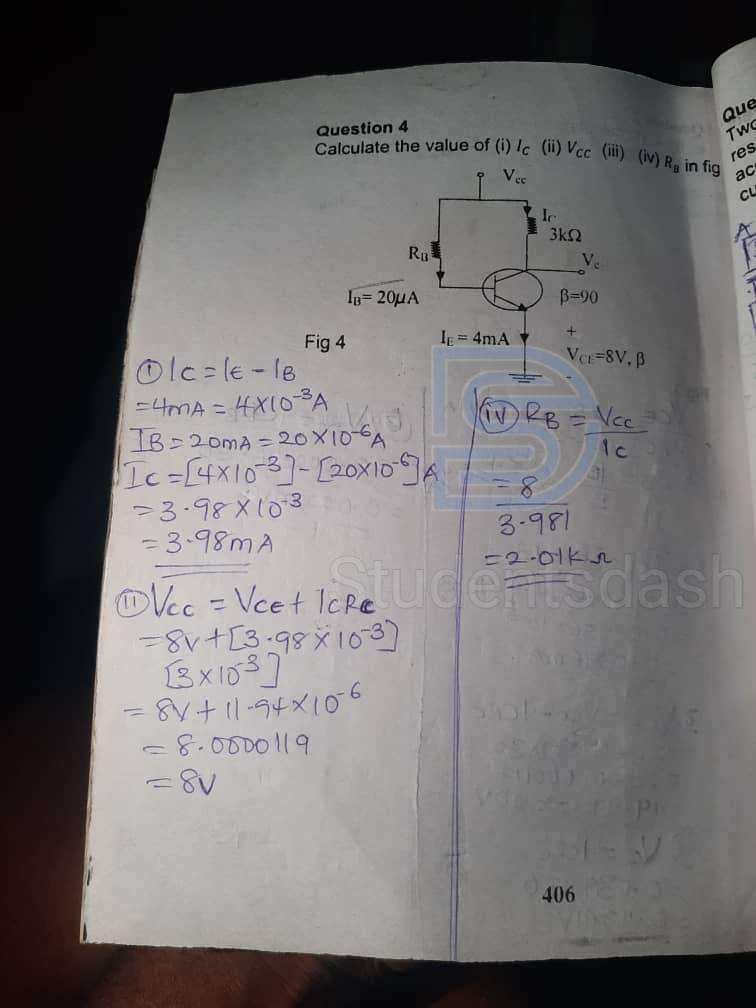 Question 4
Calculate the value of (i) IC (ii) VCC (iii) (iv) RB in fig
Vcc
IC
3kΩ
RB
Vc
IB= 20μA
β=90
Fig 4
IE = 4mA
+
VCE=8V, β
-
(i) IC = IE - IB
=4mA = 4×10⁻³A
IB = 20mA = 20×10⁻⁶A
IC =[4×10⁻³]-[20×10⁻⁶]A
= 3.98×10⁻³
= 3.98mA
(ii) VCC = VCE + ICRC
=8V+[3.98×10⁻³]
[3×10⁻³]
= 8V+11.94×10⁻⁶
= 8.0000119
= 8V
(iv) RB = VCC
IC
= 8
3.981
= 2.01KΩ
Studentsdash
406
Que
Two
res
ac
cu